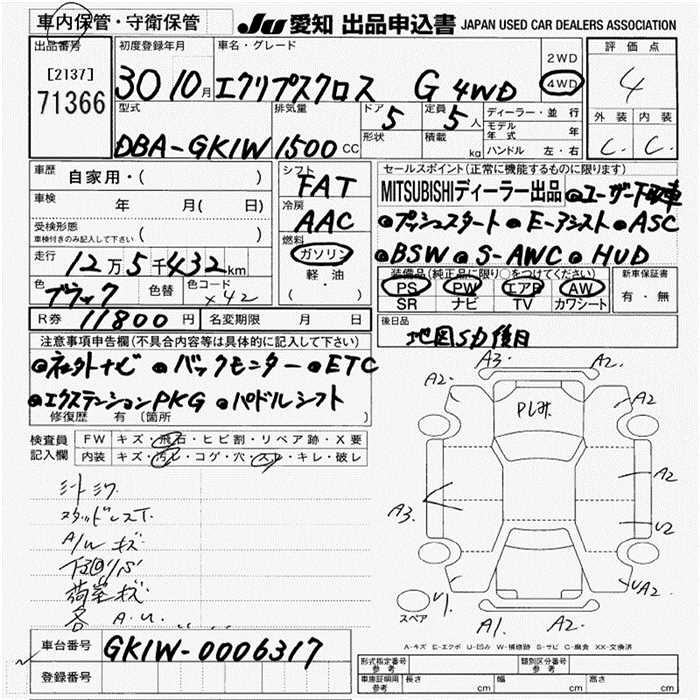 車内保管・守衛保管
JU 愛知 出品申込書 JAPAN USED CAR DEALERS ASSOCIATION
出品番号
[2137]
71366
初度登録年月
30 10月
車名・グレード
エクリプスクロス G 4WD
2WD
4WD
評価点
4
外装 内装
C. C.
型式
DBA-GK1W
排気量
1500 CC
ドア 5
形状
定員 5人
積載 kg
ディーラー・並行
モデル年式 年
ハンドル 左・右
車歴 自家用・( )
車検 年 月( 日)
受検形態
車検付きのみ記入して下さい ( )
走行 12万5千432km
色 ブラック 色替 色コード X42
R券 11800円 名変期限 月 日
シフト
FAT
冷房
AAC
燃料
ガソリン
軽・油
( )
セールスポイント(正常に機能するものに限ります)
MITSUBISHIディーラー出品 ●ユーザー下取車
●プッシュスタート ●E-アシスト ●ASC
●BSW ●S-AWC ●HUD
装備品(純正品に限り○をつけてください)
PS PW エアB AW
SR ナビ TV カワシート
新車保証書
有・無
後日品
地図SD後日
注意事項申告欄(不具合内容等は具体的に記入して下さい)
●ネクストナビ ●バックモニター ●ETC
●エクステンションPKG ●パドルシフト
修復歴 有 〔箇所 〕
検査員記入欄
FW キズ・飛石・ヒビ割・リペア跡・X要
内装 キズ・汚レ・コゲ・穴・スレ・キレ・破レ
スタッドレスT.
A/W キズ
荷室キズ
各 A.U.
車台番号 GK1W-0006317
登録番号
A3. A2.
A2. A2.
Pしみ.
A3. A2
U2
U1. UA2
スペア
A1. A2.
A-キズ E-エクボ U-凹み W-補修跡 S-サビ C-腐食 XX-交換済
形式指定番号 参考 類別区分番号 参考
車庫証明用 参考 長さ cm 幅 cm 高さ cm